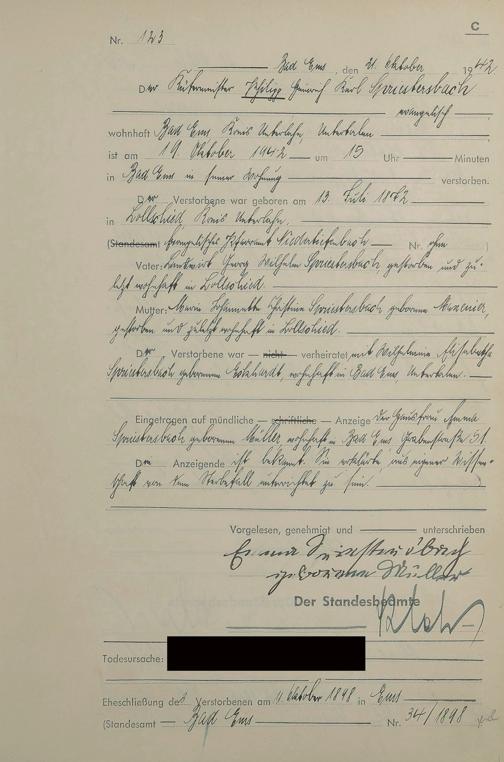 C
Nr. 123
Bad Ems, den 21. Oktober 1942
Der Küfermeister Philipp Heinrich Karl Spriestersbach
evangelisch
wohnhaft Bad Ems Kreis Unterlahn, Untertalen
ist am 19. Oktober 1942 um 15 Uhr Minuten
in Bad Ems in seiner Wohnung verstorben.
Der Verstorbene war geboren am 13. Juli 1872
in Lollschied, Kreis Unterlahn.
(Standesamt Evangelisches Pfarramt Niedertiefenbach Nr. ohne )
Vater: Landwirt Georg Wilhelm Spriestersbach gestorben und zu-
letzt wohnhaft in Lollschied
Mutter: Maria Christine Spriestersbach geborene
gestorben und zuletzt wohnhaft in Lollschied.
Der Verstorbene war — nicht — verheiratet mit Wilhelmine Elisabetha
Spriestersbach geborenen Eckhardt, wohnhaft in Bad Ems Untertalen.
Eingetragen auf mündliche — schriftliche — Anzeige der Hausfrau Emma
Spriestersbach geborenen Müller, wohnhaft in Bad Ems Grabenstraße 51.
Die Anzeigende ist bekannt. Sie erklärte aus eigener Wissen-
schaft von dem Sterbefall unterrichtet zu sein.
Vorgelesen, genehmigt und unterschrieben
Emma Spriestersbach
geborene Müller
Der Standesbeamte
Todesursache:
Eheschließung des Verstorbenen am 11. Oktober 1898 in Ems
(Standesamt Bad Ems Nr. 34/1898